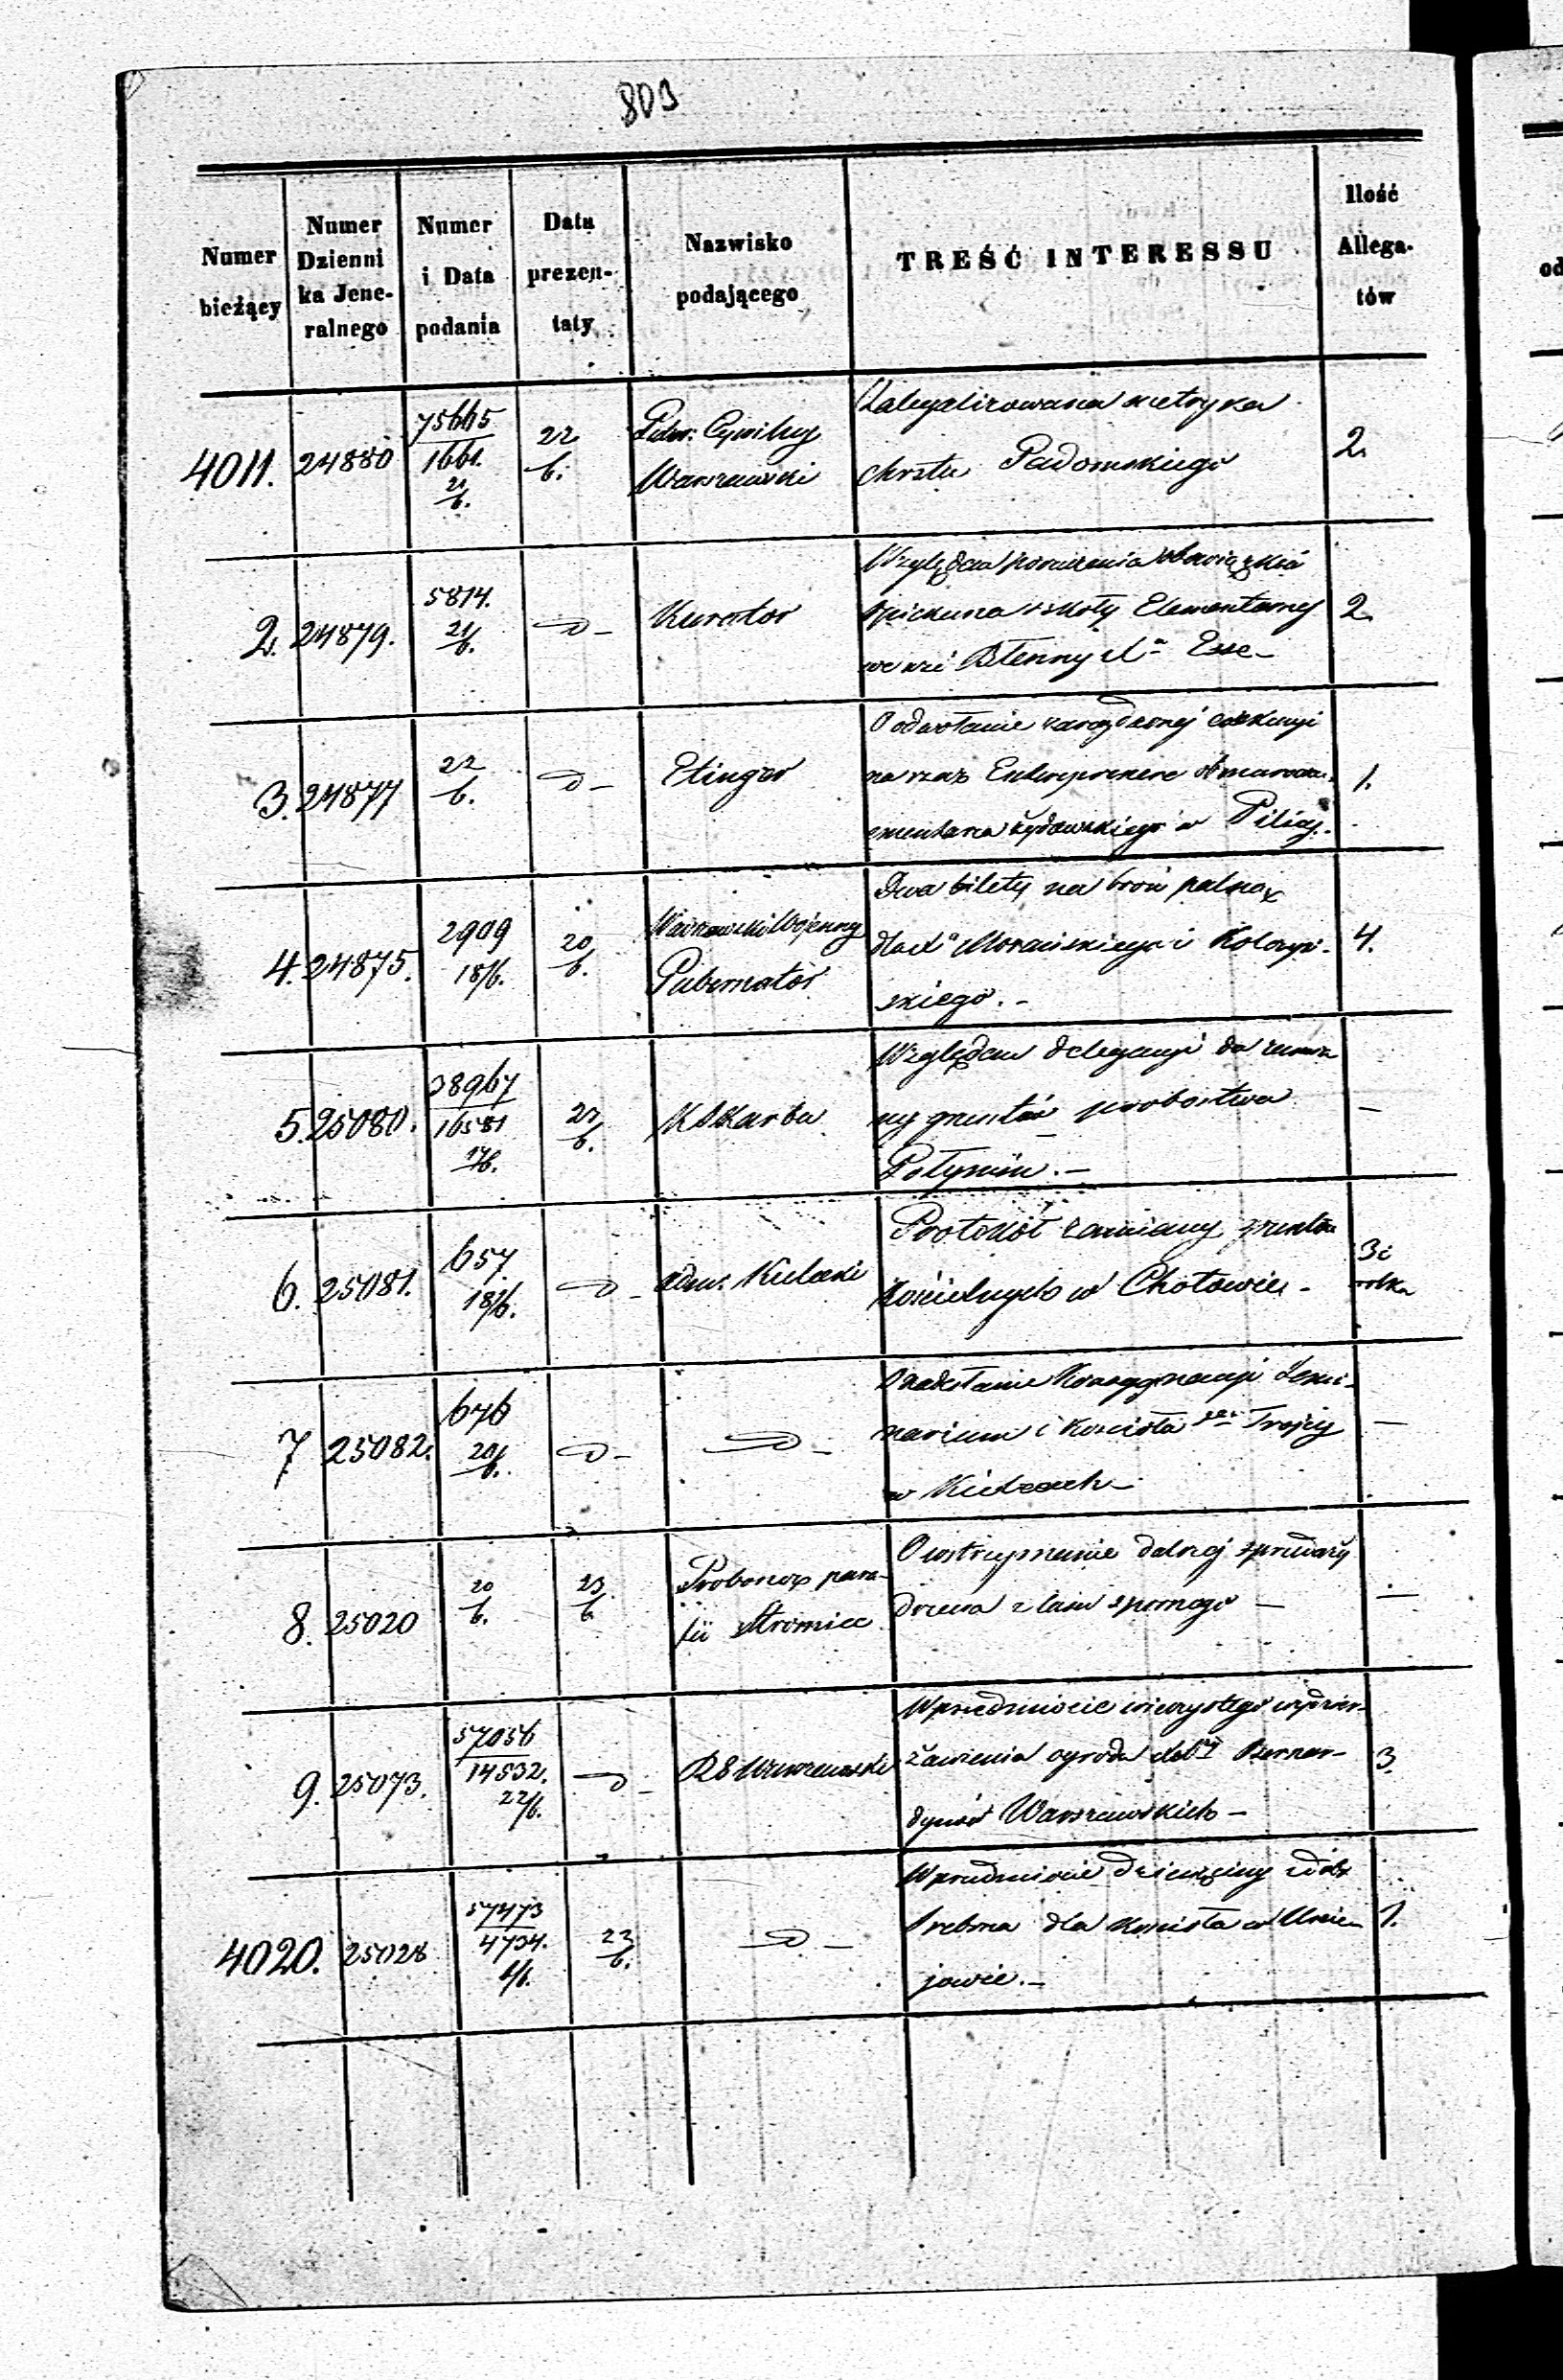 803
Numer bieżący
Numer Dziennika Jeneralnego
Numer i Data podania
Data prezentaty
Nazwisko podającego
TREŚĆ INTERESSU
Ilość Allegatów
4011. 24880 75665 1661. 21/6. 22/6. Gub: Cywilny Warszawski
Zalegalizowana metryka
chrztu Radomskiego
2.
2. 24879. 5814. 21/6. -D- Kurator
Względem poruczenia obowiązków
opiekuna szkoły Elementarnej
we wsi Błenny
2.
3. 24877 22/6. -D- Etinger
O odwołanie zarządzonej
na rzecz Entreprenera
cmentarza żydowskiego w Pilicy.
1.
4. 24875. 2909 18/6. 20/6. Warszawski Wojenny Gubernator
Dwa bilety na broń palną
dla Morawskiego i
skiego. -
4.
5. 25080. 38967 16581 17/6. 22/6. K S Karbu
Względem delegacyi do zamia
ny gruntów probostwa
-
6. 25081. 657 18/6. -D- Adm: Kielecki
Protokół zamiany gruntów
Kościelnych w Chotowie -
3 i rolka
7 25082. 676 20/6. -D- -D-
O nadesłanie Konsygnacyi Semi-
narium i Kościoła Trójcy
w Kielcach -
-
8. 25020 20/6. 23/6 Proboszcz para- fii Stromiec
O wstrzymanie dalszej sprzedaży
drzewa z lasu spornego -
-
9. 25073. 57056 14532. 22/6. -D- R G Warszawski
W przedmiocie wieczystego wydzier-
żawienia ogrodu Bernar-
dynów Warszawskich -
3.
4020. 25028 57473 4734. 23/6. -D-
W przedmiocie dziesięciny z dóbr
Srebrna dla Kościoła w Unie-
jowie. -
1.